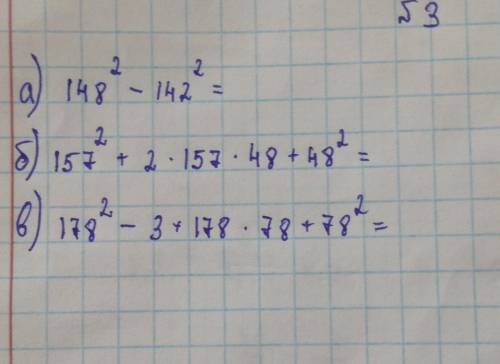 № 3
а) 148² - 142² =
б) 157² + 2 · 157 · 48 + 48² =
в) 178² - 3 + 178 · 78 + 78² =